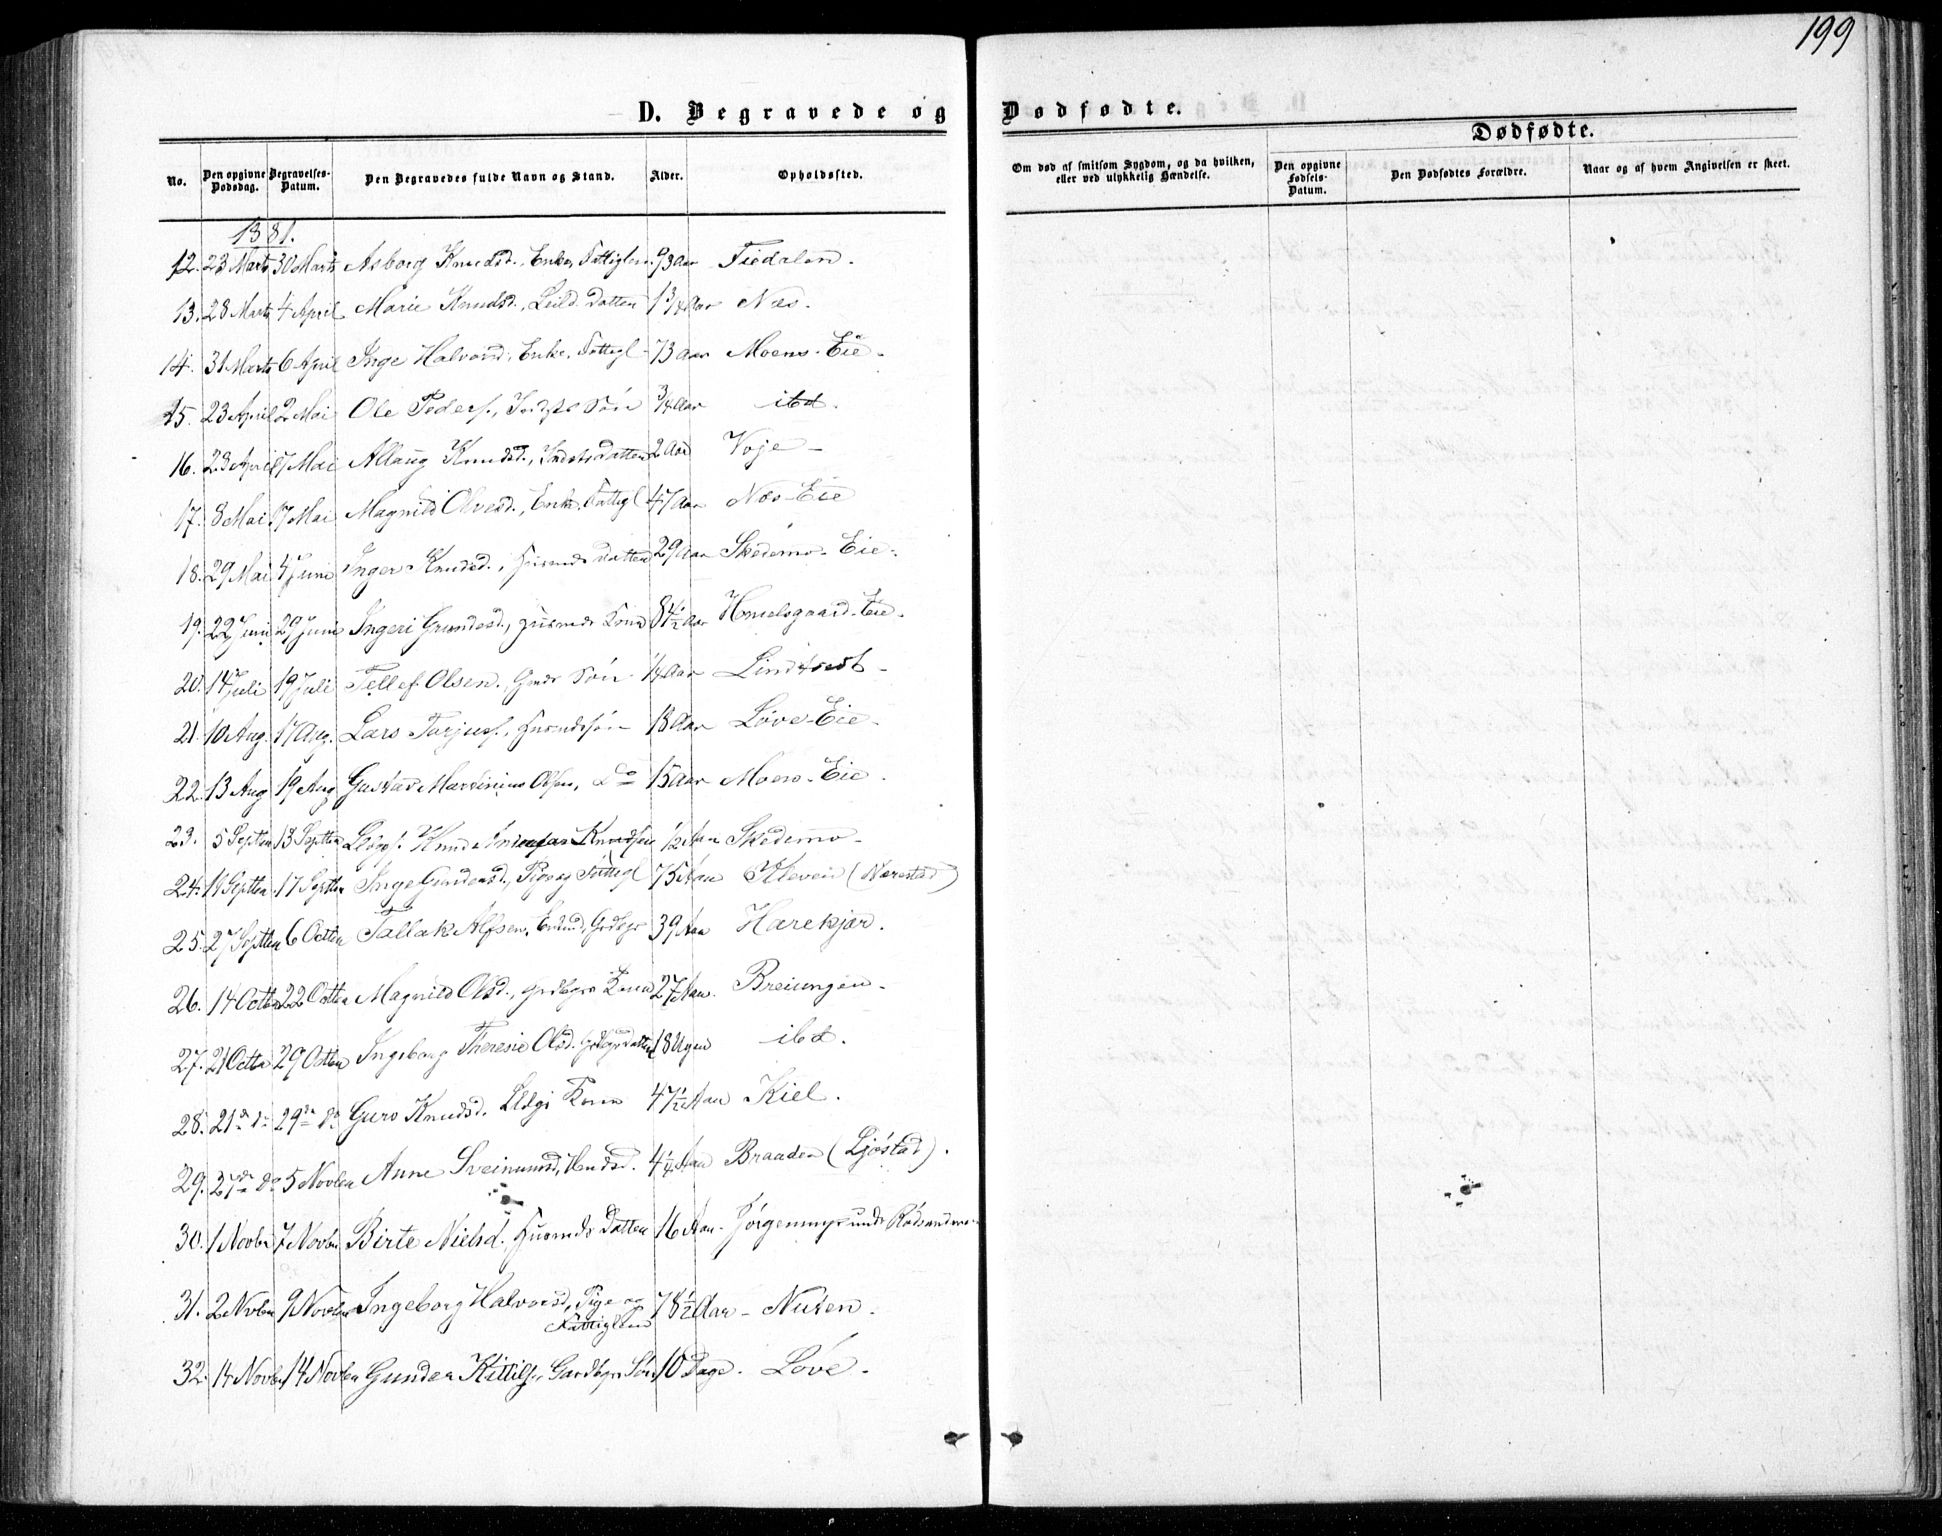 199
D. Begravede og Dødfødte.
Dødfødte.
No. Den opgivne Dødsdag. Begravelses-Datum. Den Begravedes fulde Navn og Stand. Alder. Opholdssted. Om død af smitsom Sygdom, og da hvilken, eller ved ulykkelig Hændelse. Den opgivne Fødsels-Datum. Den Dødfødtes Forældre. Naar og af hvem Angivelsen er skeet.
1881.
12. 23 Marts 30 Marts Asborg Knudsd., Enke, Fattiglem
13. 28 Marts 4 April Marie Knudsd., Leild. Datter 1 3/4 Aar Næs.
14. 31 Marts 6 April Inge Halvorsd., Enke, Fattigl 73 Aar Moens-Eie.
15. 23 April 2 Mai Ole Peders., Indsts Søn 3/4 Aar ibd.
16. 23 April Mai Allaug Knudsd., Indstsdatter 2 Aar Voje
17. 8 Mai 17 Mai Magnild Olvesd., Enke, Fattigl 47 Aar Næs-Eie
18. 29 Mai 4 Juni Inger Knudsd., Husmds Datter 29 Aar Skedemo-Eie.
19. 22 Juni 29 Juni Ingeri Grundesd., Husmds Kone 81 1/2 Aar -Eie.
20. 14 Juli 19 Juli Tellef Olsen, Gmds Søn 1/4 Aar Lindtveit
21. 10 Aug. 17 Aug. Lars Tarjus., Husmdssøn 18 Aar Løve-Eie.
22. 13 Aug 19 Aug Gustav Martinius Olsen, Do 15 Aar Moens-Eie.
23. 5 Septbr 13 Septbr Knud Knudsen 1/2 Aar Skedemo
24. 11 Septbr 17 Septbr Inge Gundersd., Pige og Fattigl 75 Aar Kleven (Nærestad)
25. 27 Septbr 6 Octbr Tallak Alfsen, Enkmd, Grdbgr 39 Aar Harekjær.
26. 14 Octbr 22 Octbr Magnild Olsd., Grdbgrs Kone 27 Aar. Breiungen
27. 21 Octbr 29 Octbr Ingeborg Theresie Olsd. Grdbgrsdatter 18 Uger ibd.
28. 21de do 29de do Guro Knudsd. Kone 47 1/2 Aar Kiel.
29. 27de do 5 Novbr Anne Sveinunsd, Husd. 4 1/4 Aar Braaden (Ljøstad).
30. 1 Novbr 7 Novbr Birte Nielsd. Husmds Datter 16 Aar Jørgenmyr under Rødsanden
31. 2 Novbr 9 Novbr Ingeborg Halvorsd, Pige og 78 1/2 Aar Nuten.
Fattiglem
32. 14 Novbr 14 Novbr Gunder Kittils., Gardbgrs Søn 10 Dage. Løve.